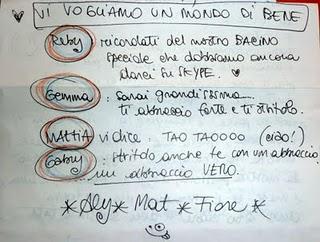 VI VOGLIAMO UN MONDO DI BENE
Ruby : ricordati del nostro BACINO
speciale che dobbiamo ancora
darci su SKYPE.
Gemma : sarai grandissima...
ti abbraccio forte e ti stritolo.
MATTiA vi dice : TAO TAOOOO (ciao!)
Gabry : stritolo anche te con un abbraccio
un abbraccio VERO.
*Aly* Mat * Fiore *